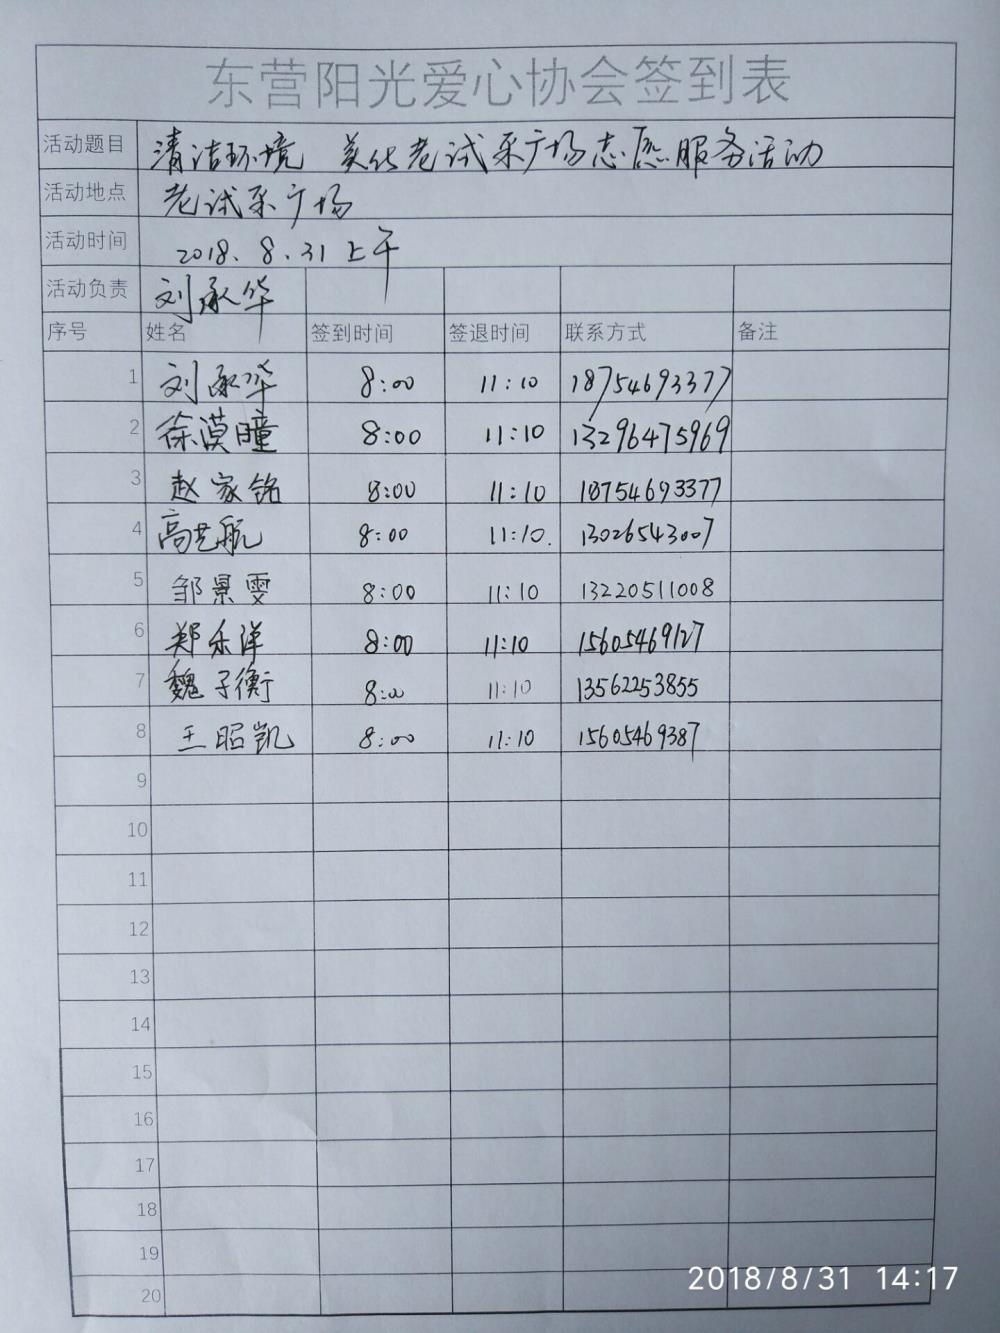 东营阳光爱心协会签到表
活动题目 清洁环境 美化老试采广场志愿服务活动
活动地点 老试采广场
活动时间 2018.8.31上午
活动负责 刘承华
序号 姓名 签到时间 签退时间 联系方式 备注
1 刘承华 8:00 11:10 18754693377
2 徐漠瞳 8:00 11:10 13296475969
3 赵家铭 8:00 11:10 18754693377
4 高艺航 8:00 11:10. 13026543007
5 邹景雯 8:00 11:10 13220511008
6 郑乐洋 8:00 11:10 15605469127
7 魏子衡 8:00 11:10 13562253855
8 王昭凯 8:00 11:10 15605469387
9
10
11
12
13
14
15
16
17
18
19
20
2018/8/31 14:17